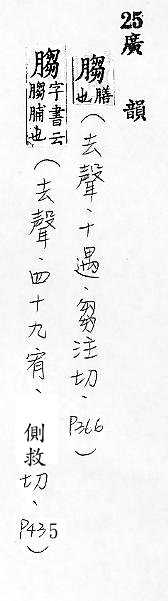 25廣　韻
膓膳也（去聲、十遇、芻注切、P366）
膓字書云膓脯也（去聲、四十九宥、側救切、P435）